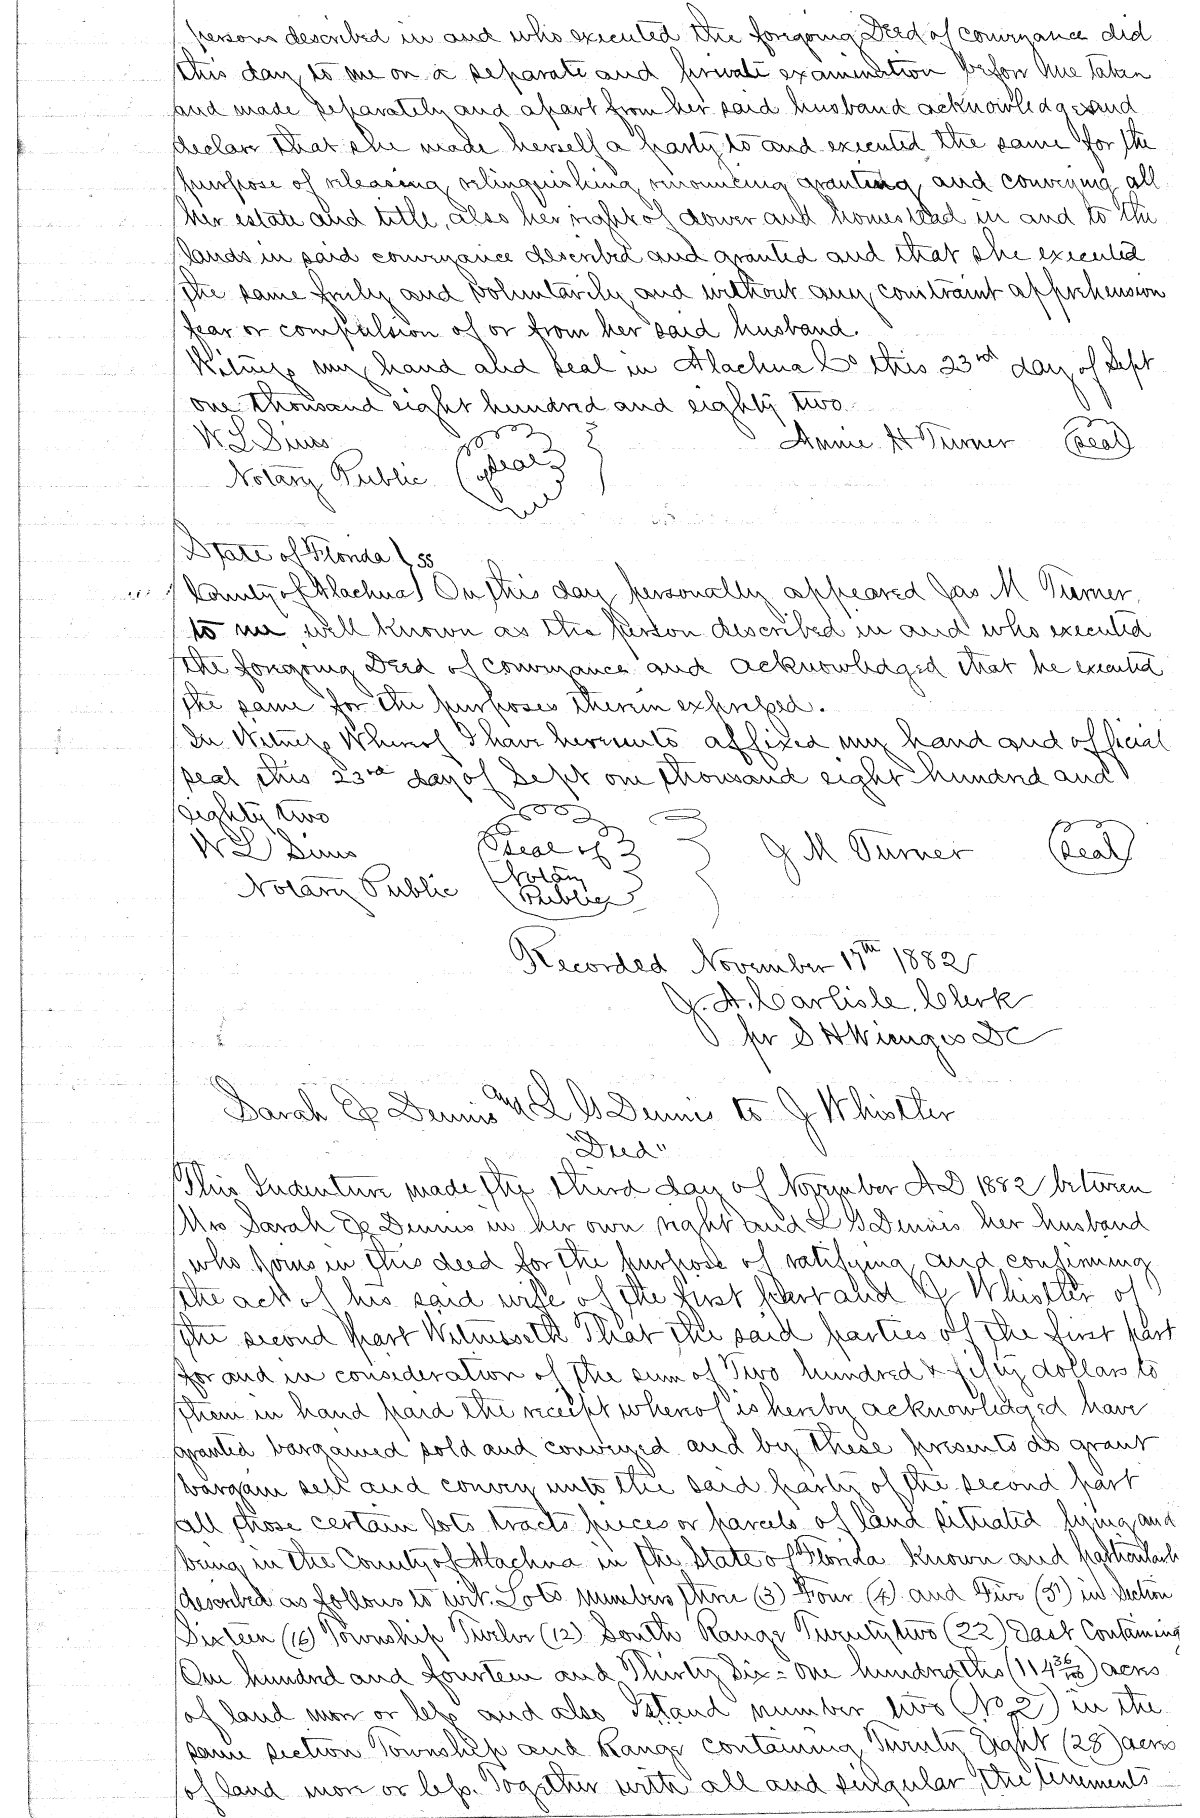 persons described in and who executed the foregoing Deed of conveyance did
this day to me on a separate and private examination before me taken
and made separately and apart from her said husband acknowledge and
declare that she made herself a party to and executed the same for the
purpose of releasing relinquishing renouncing granting and conveying all
her estate and title, also her right of dower and homestead in and to the
lands in said conveyance described and granted and that she executed
the same freely and voluntarily and without any constraint apprehension
fear or compulsion of or from her said husband.
Witness my hand and seal in Alachua Co this 23rd day of Sept
one thousand eight hundred and eighty two.
W. L Sims Annie H Turner (Seal)
Notary Public (Seal)
State of Florida } ss
County of Alachua } On this day personally appeared Jas M Turner
to me well known as the person described in and who executed
the foregoing Deed of conveyance and acknowledged that he executed
the same for the purposes therein expressed.
In Witness Whereof I have hereunto affixed my hand and official
seal this 23rd day of Sept one thousand eight hundred and
eighty two
W L Sims (Seal of J M Turner (Seal)
Notary Public Notary Public)
Recorded November 17th 1882
J. A. Carlisle, Clerk
pr S H Wienges DC
Sarah E Dennis and L G Dennis to J Whistler
"Deed"
This Indenture made the third day of November AD 1882 between
Mrs Sarah E Dennis in her own right and L G Dennis her husband
who joins in this deed for the purpose of ratifying and confirming
the act of his said wife of the first part and J Whistler of
the second part Witnesseth That the said parties of the first part
for and in consideration of the sum of Two hundred & fifty dollars to
them in hand paid the receipt whereof is hereby acknowledged have
granted bargained sold and conveyed and by these presents do grant
bargain sell and convey unto the said party of the second part
all those certain lots tracts pieces or parcels of land situated lying and
being in the County of Alachua in the State of Florida known and particularly
described as follows to wit. Lots numbers three (3) Four (4) and Five (5) in Section
Sixteen (16) Township Twelve (12) South Range Twenty two (22) East Containing
One hundred and fourteen and Thirty Six = one hundredths (114 36/100) acres
of land more or less and also Island number two (No 2) in the
same section Township and Range containing Twenty Eight (28) acres
of land more or less. Together with all and singular the tenements